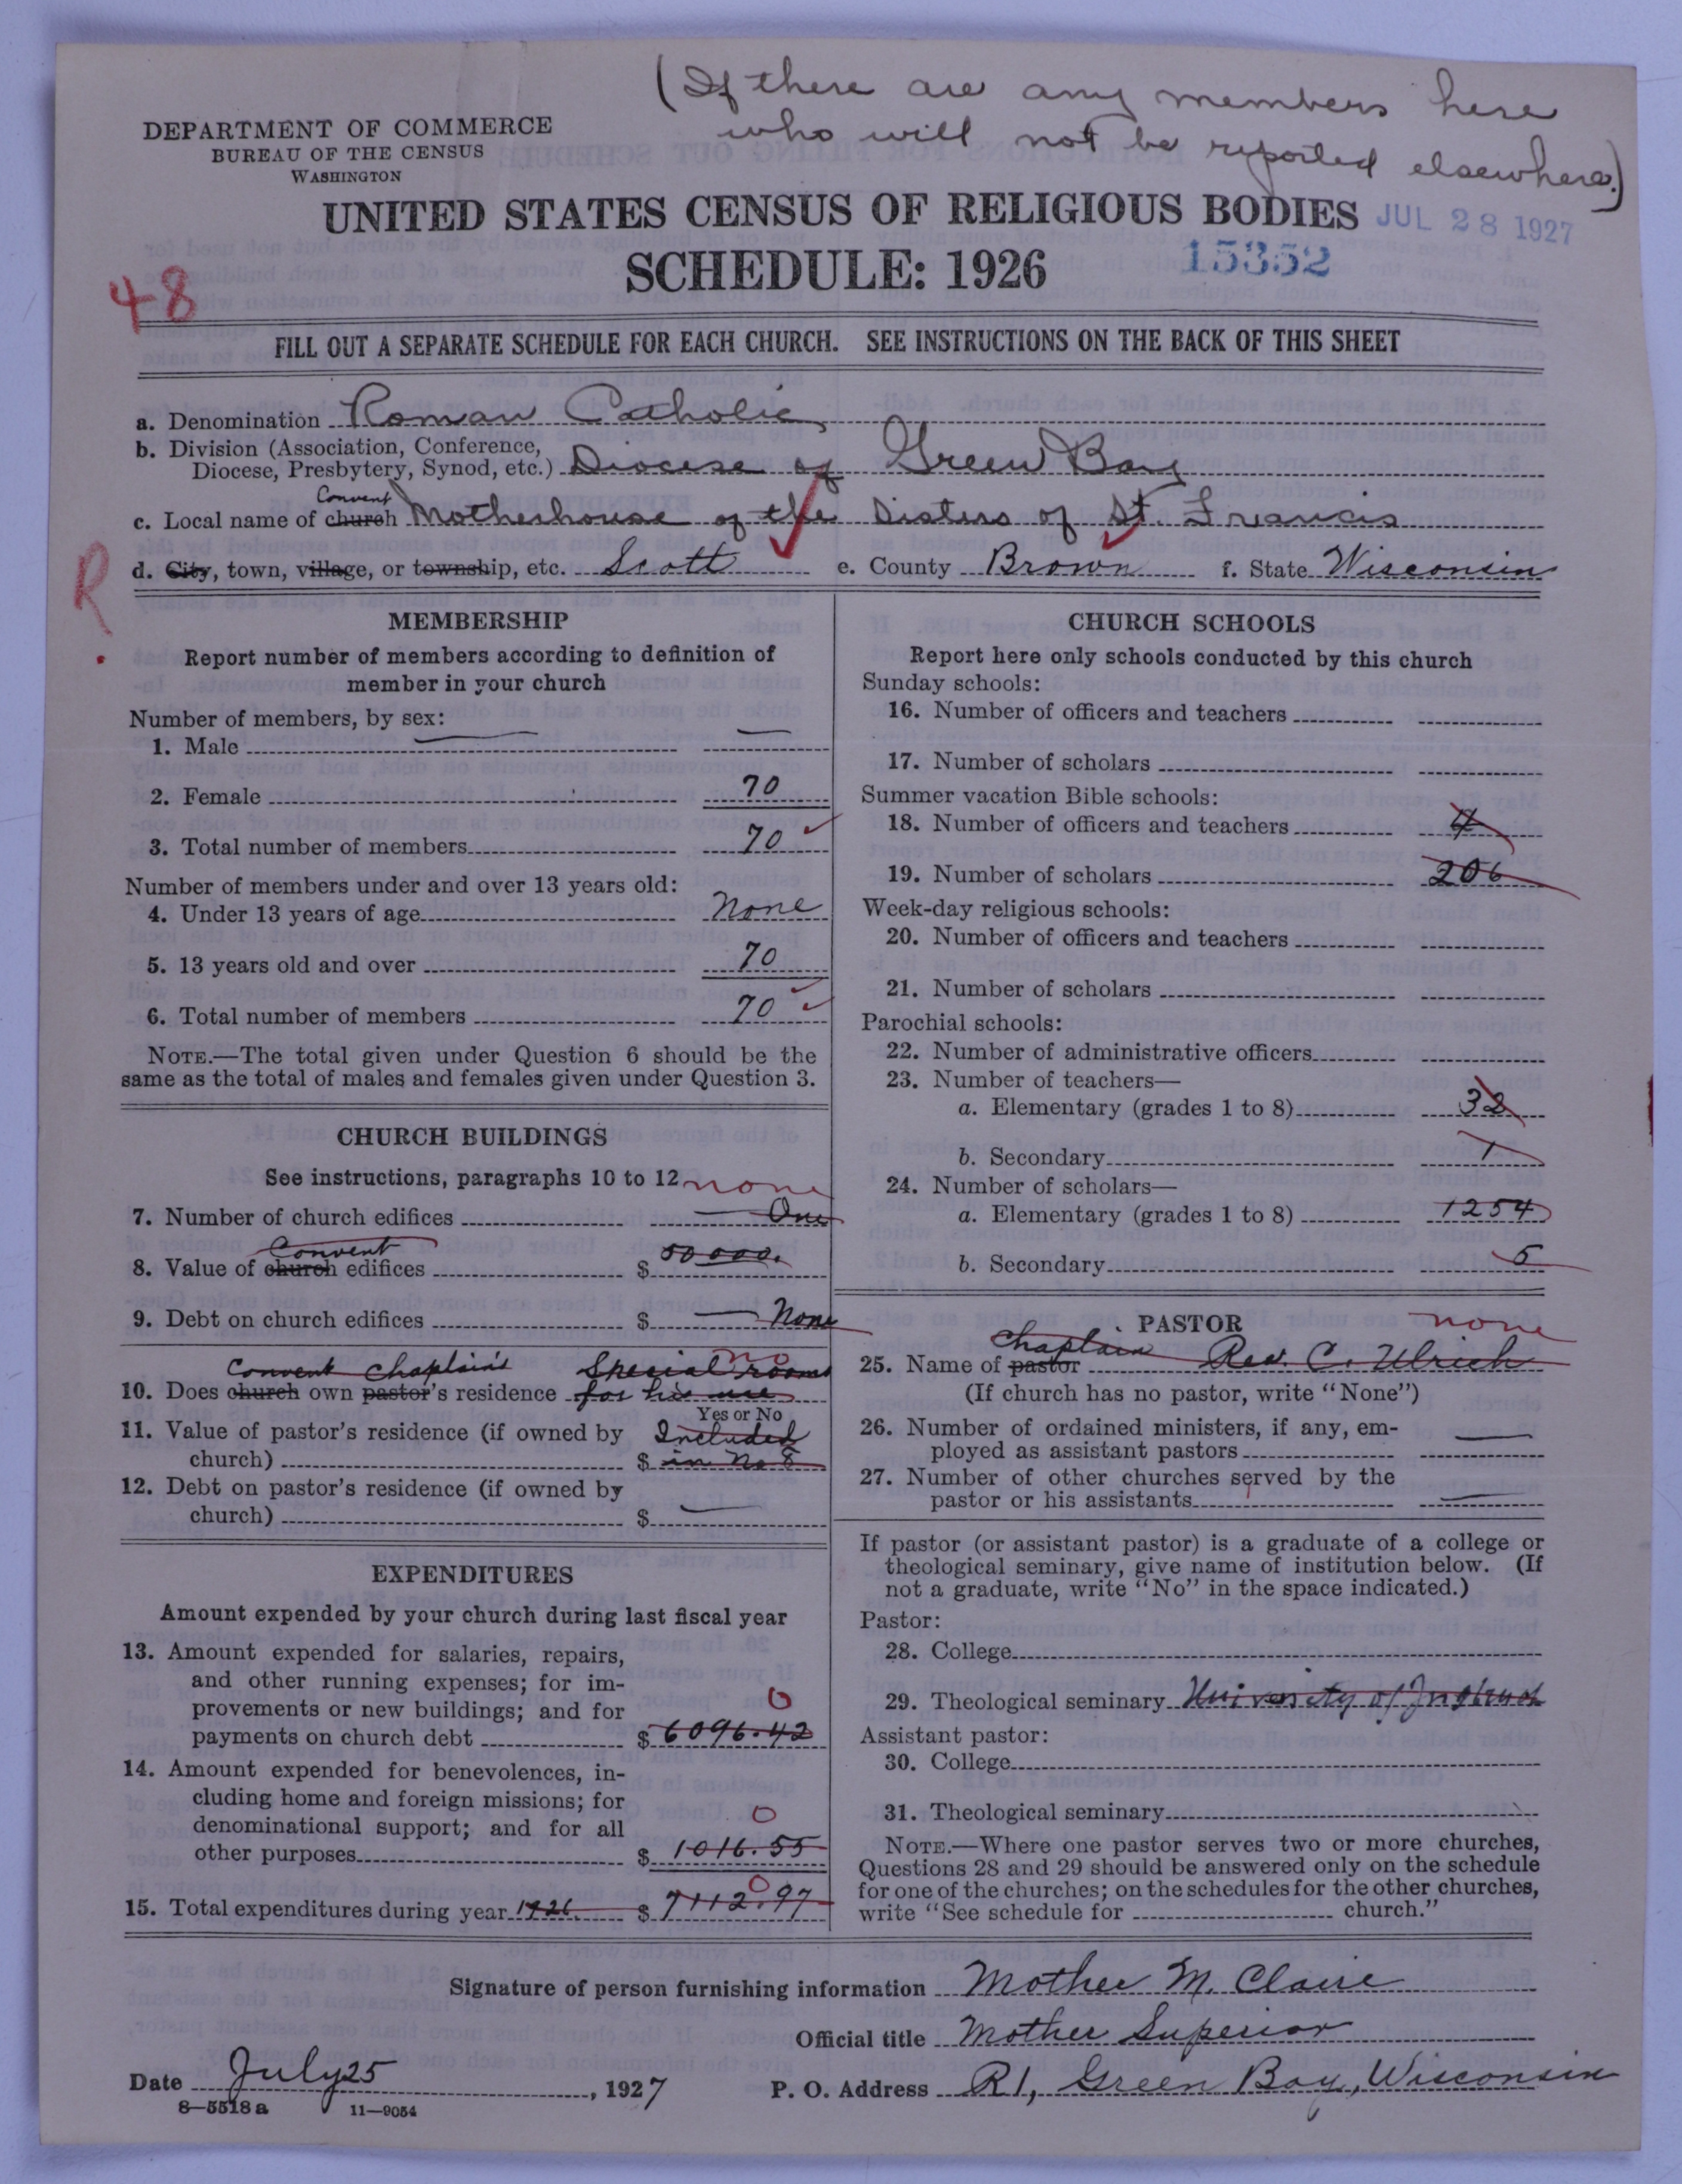 (If there are any members here
who will not be reported elsewhere.)
DEPARTMENT OF COMMERCE
BUREAU OF THE CENSUS
WASHINGTON
UNITED STATES CENSUS OF RELIGIOUS BODIES
JUL 28 1927
SCHEDULE: 1926
15352
48
FILL OUT A SEPARATE SCHEDULE FOR EACH CHURCH. SEE INSTRUCTIONS ON THE BACK OF THIS SHEET
a. Denomination Roman Catholic
b. Division (Association, Conference,
Diocese, Presbytery, Synod, etc.) Diocese of Green Bay
Convent
c. Local name of church Motherhouse of the Sisters of St. Francis
R
d. City, town, village, or township, etc. Scott e. County Brown f. State Wisconsin
MEMBERSHIP
Report number of members according to definition of
member in your church
Number of members, by sex:
1. Male —
2. Female 70
3. Total number of members 70
Number of members under and over 13 years old:
4. Under 13 years of age None
5. 13 years old and over 70
6. Total number of members 70
NOTE.—The total given under Question 6 should be the
same as the total of males and females given under Question 3.
CHURCH BUILDINGS
See instructions, paragraphs 10 to 12 none
7. Number of church edifices — One
Convent
8. Value of church edifices $ 50000.
9. Debt on church edifices $ — None
Convent Chaplain's Special rooms no
10. Does church own pastor's residence for his use
Yes or No
11. Value of pastor's residence (if owned by Included
church) $ in No 8
12. Debt on pastor's residence (if owned by
church) $ —
EXPENDITURES
Amount expended by your church during last fiscal year
13. Amount expended for salaries, repairs,
and other running expenses; for im-
provements or new buildings; and for 0
payments on church debt $ 6096.42
14. Amount expended for benevolences, in-
cluding home and foreign missions; for
denominational support; and for all 0
other purposes $ 1016.55
0
15. Total expenditures during year 1926 $ 7112.97
CHURCH SCHOOLS
Report here only schools conducted by this church
Sunday schools:
16. Number of officers and teachers
17. Number of scholars
Summer vacation Bible schools:
18. Number of officers and teachers 4
19. Number of scholars 206
Week-day religious schools:
20. Number of officers and teachers
21. Number of scholars
Parochial schools:
22. Number of administrative officers
23. Number of teachers—
a. Elementary (grades 1 to 8) 32
b. Secondary 1
24. Number of scholars—
a. Elementary (grades 1 to 8) 1254
b. Secondary 5
PASTOR none
Chaplain
25. Name of pastor Rev. C. Ulrich
(If church has no pastor, write "None")
26. Number of ordained ministers, if any, em-
ployed as assistant pastors —
27. Number of other churches served by the
pastor or his assistants —
If pastor (or assistant pastor) is a graduate of a college or
theological seminary, give name of institution below. (If
not a graduate, write "No" in the space indicated.)
Pastor:
28. College
29. Theological seminary University of
Assistant pastor:
30. College
31. Theological seminary
NOTE.—Where one pastor serves two or more churches,
Questions 28 and 29 should be answered only on the schedule
for one of the churches; on the schedules for the other churches,
write "See schedule for church."
Signature of person furnishing information Mother M. Claire
Official title Mother Superior
Date July 25, 1927 P. O. Address R1, Green Bay, Wisconsin
8—5518a 11—9054